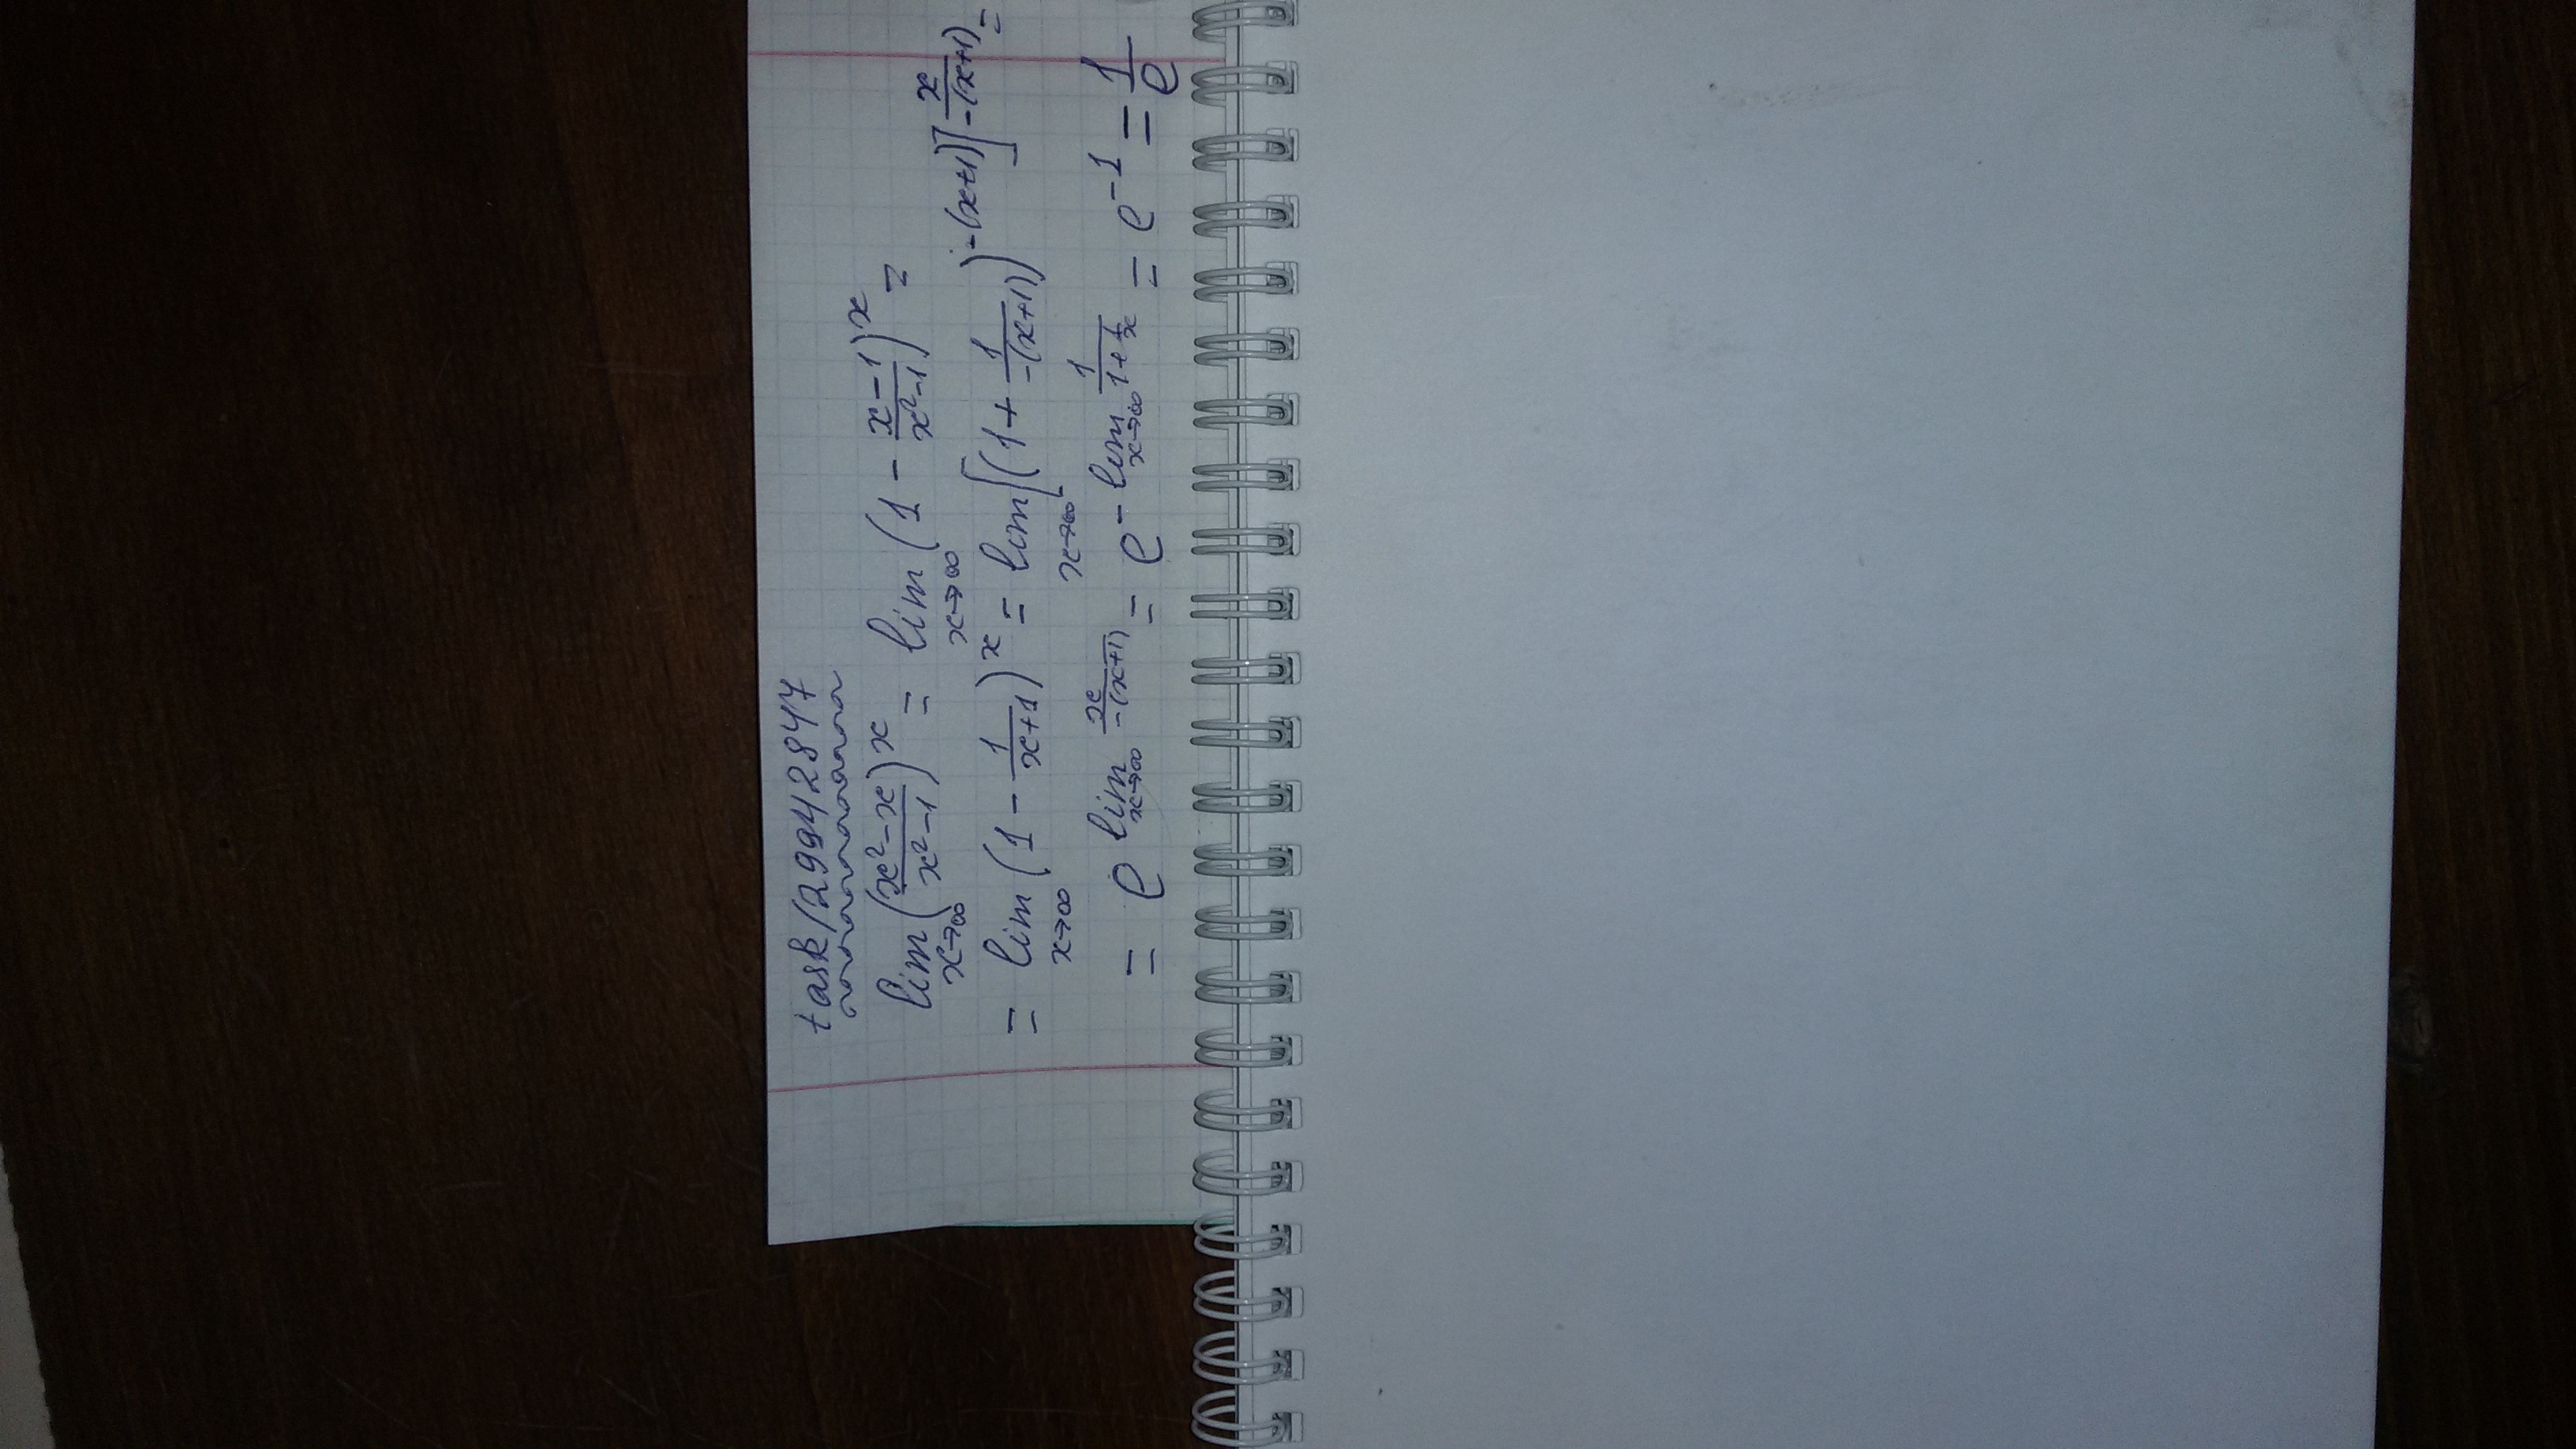 task/29942847
lim x→∞ ((x²-x)/(x²-1))^x = lim x→∞ (1 - (x-1)/(x²-1))^x =
= lim x→∞ (1 - 1/(x+1))^x = lim x→∞ [(1 + 1/(-(x+1)))^(-(x+1))]^(x/(-(x+1))) =
= e^(lim x→∞ x/(-(x+1))) = e^(-lim x→∞ 1/(1+1/x)) = e^(-1) = 1/e